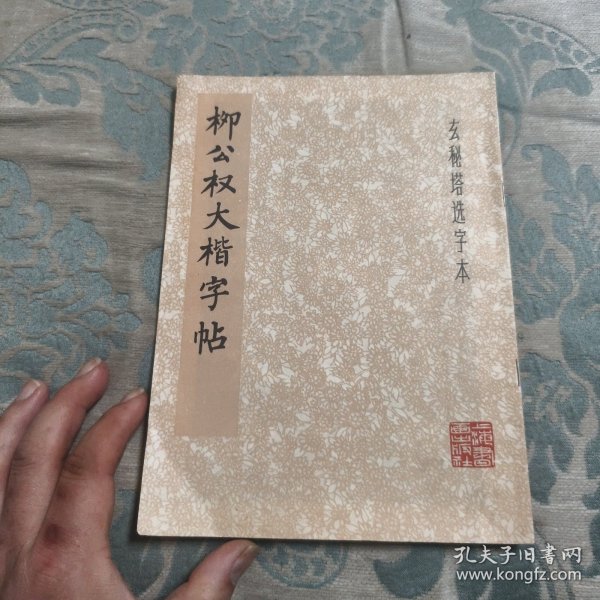 柳公权大楷字帖
玄秘塔选字本
上海書
画出版社
孔夫子旧书网
www.kongfz.com